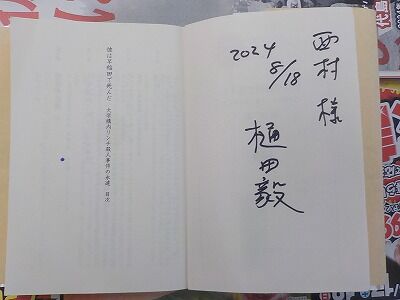 西村 様
2024
8/18
樋田毅
彼は早稲田で死んだ 大学構内リンチ殺人事件の永遠 目次